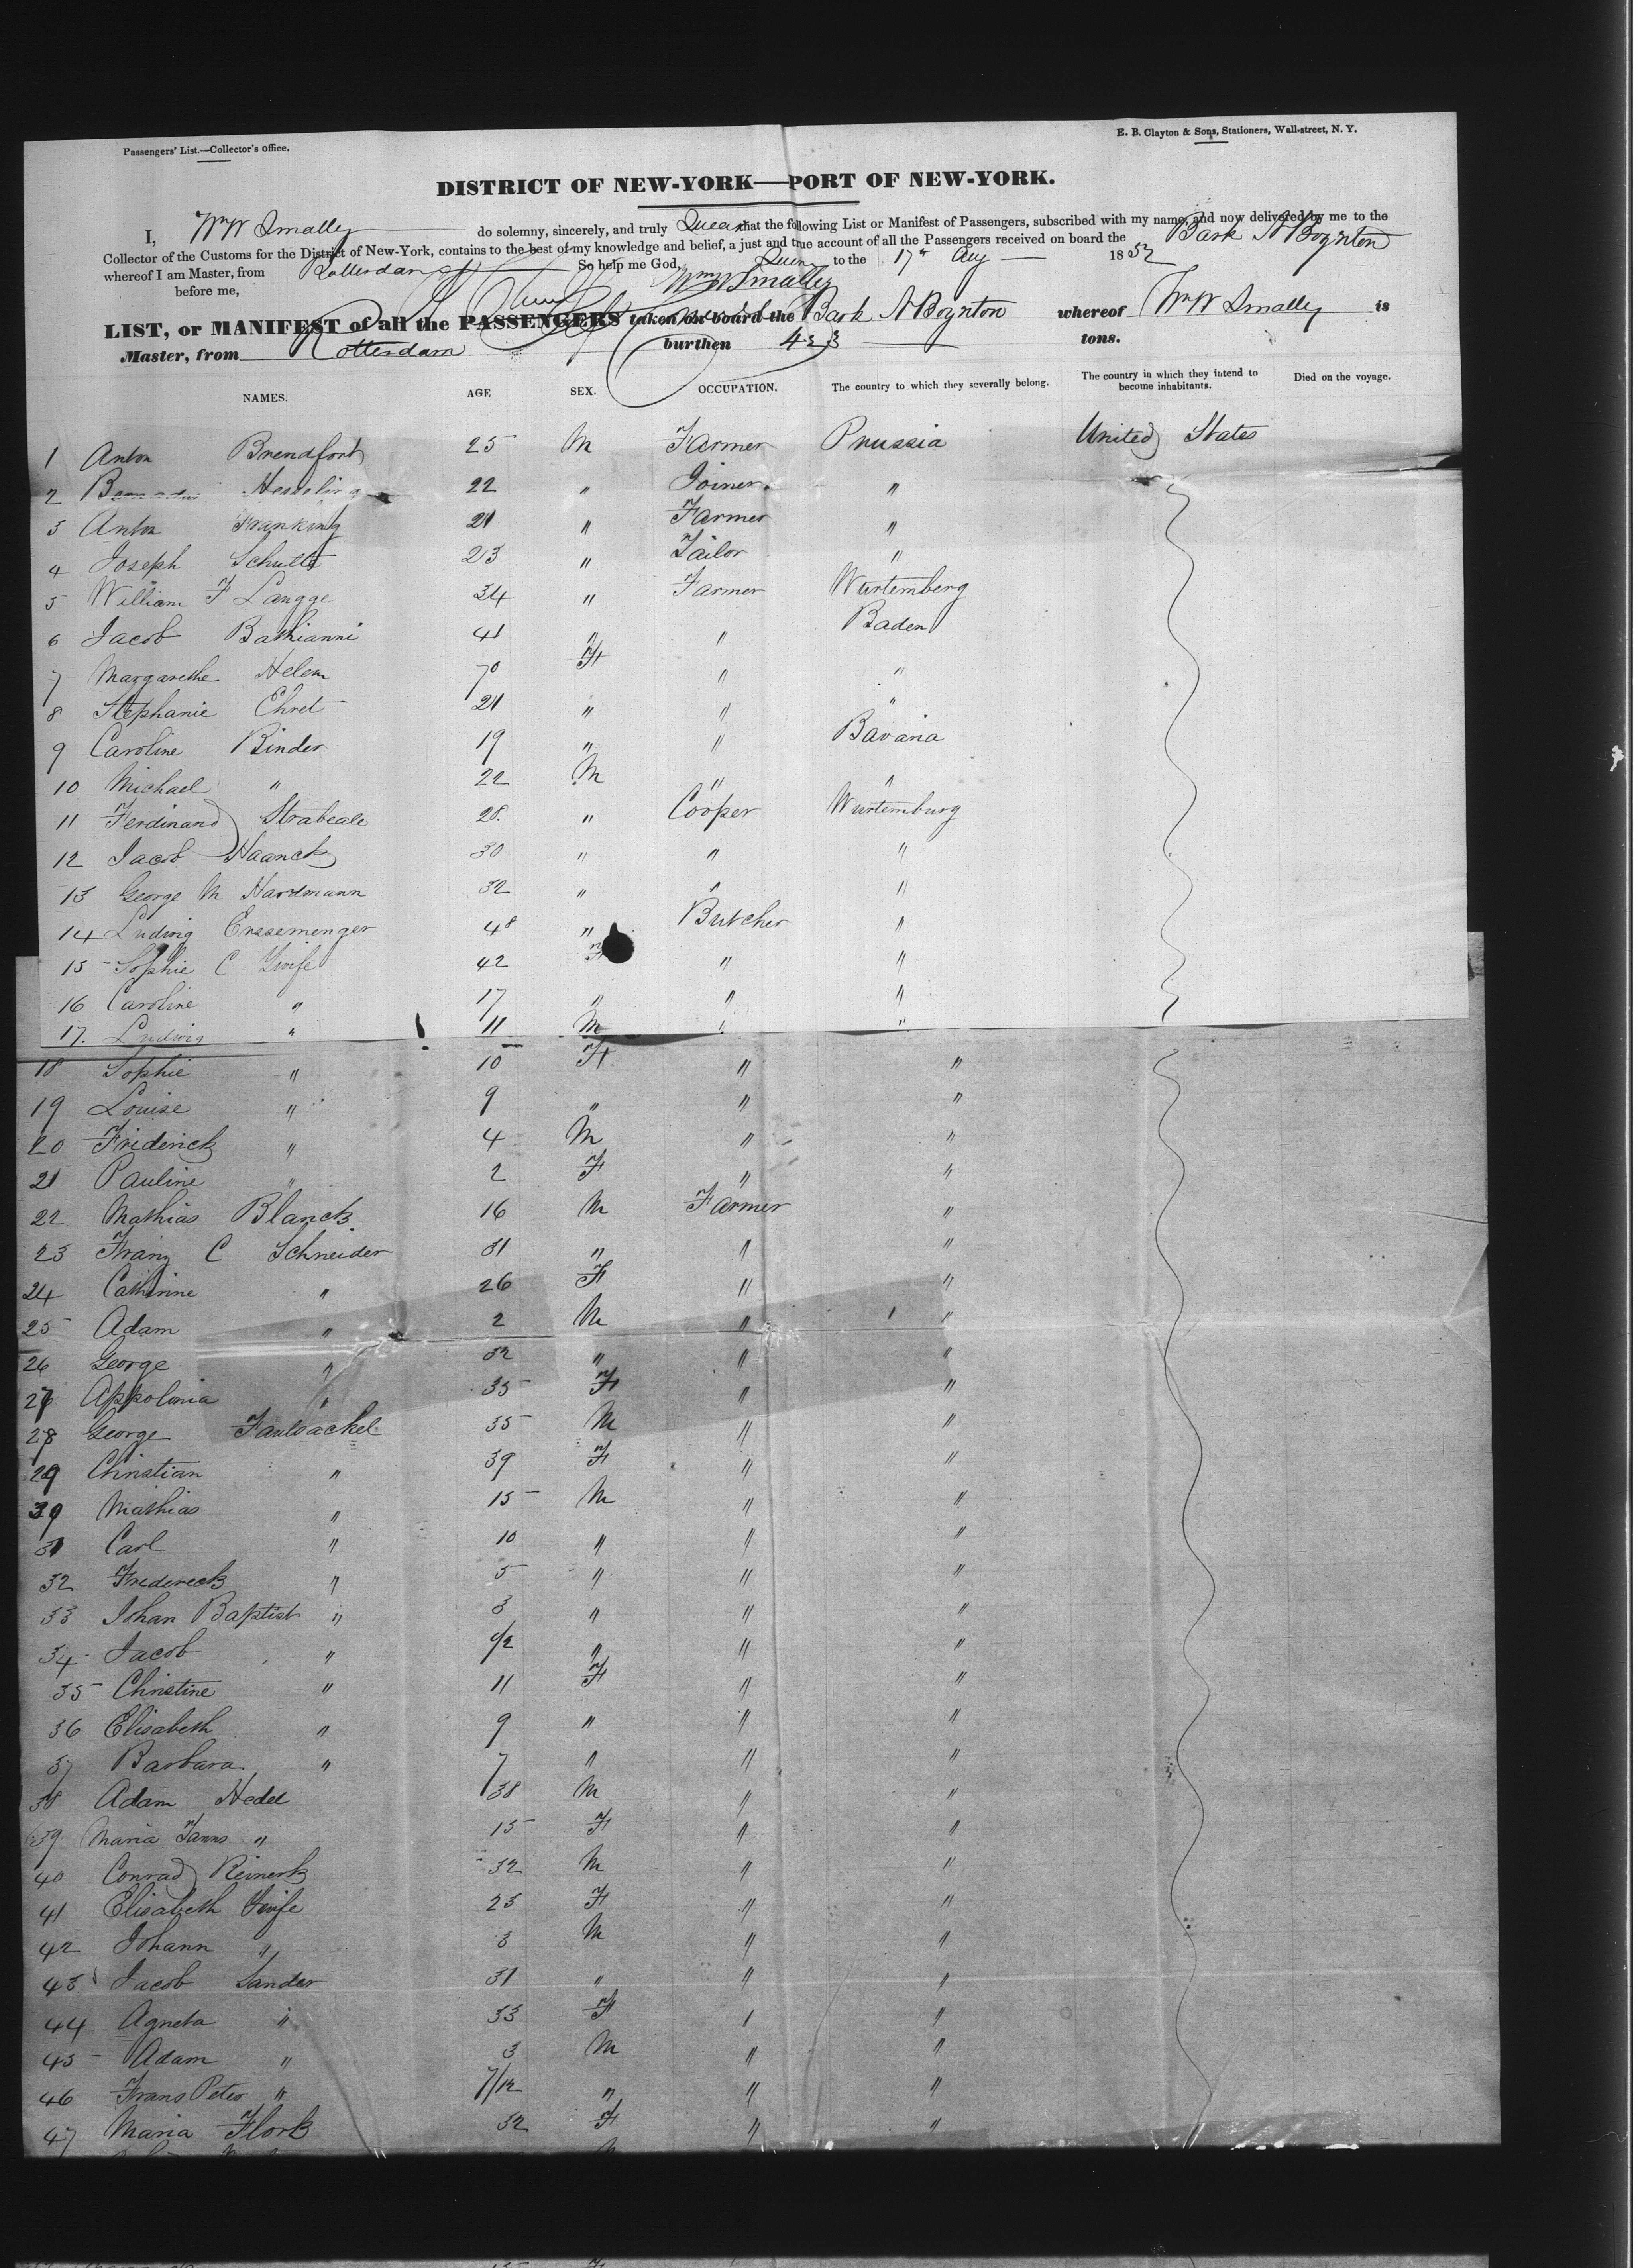 Passengers' List.—Collector's office.
E. B. Clayton & Sons, Stationers, Wall-street, N. Y.
DISTRICT OF NEW-YORK—PORT OF NEW-YORK.
I, Wm W Smally do solemny, sincerely, and truly Swear that the following List or Manifest of Passengers, subscribed with my name, and now delivered by me to the
Collector of the Customs for the District of New-York, contains to the best of my knowledge and belief, a just and true account of all the Passengers received on board the Bark N Boynton
whereof I am Master, from Rotterdam So help me God, Sworn to the 17th Aug 1852
before me, Wm W Smally
LIST, or MANIFEST of all the PASSENGERS taken on board the Bark N Boynton whereof Wm W Smally is
Master, from Rotterdam burthen 433 tons.
NAMES. AGE SEX. OCCUPATION. The country to which they severally belong. The country in which they intend to become inhabitants. Died on the voyage.
1 Anton Brendfort 25 M Farmer Prussia United States
2 Hesseling 22 " Joiner "
3 Anton Franking 21 " Farmer "
4 Joseph Schulte 23 " Tailor "
5 William F Langge 34 " Farmer Wurtemberg
6 Jacob Bathianni 41 " " Baden
7 Margarethe Helem 70 F " "
8 Stephanie Ehret 21 " " "
9 Caroline Binder 19 " " Bavaria
10 Michael " 22 M " "
11 Ferdinand Strabeale 28. " Cooper Wurtemburg
12 Jacob Haanck 30 " " "
13 George M Hardmann 32 " " "
14 Ludwig Erasemenger 48 " Butcher "
15 Sophie C Ywife 42 F " "
16 Caroline " 17 " " "
17. Ludwig " 11 M " "
18 Sophie " 10 F " "
19 Louise " 9 " " "
20 Friderick " 4 M " "
21 Pauline " 2 F " "
22 Mathias Blanck 16 M Farmer "
23 Franz C Schneider 31 " " "
24 Cathrine " 26 F " "
25 Adam " 2 M " "
26 George " 32 " " "
27 Appolonia " 35 F " "
28 George Faulsackel 35 M " "
29 Christian " 39 F " "
30 Mathias " 15 M " "
31 Carl " 10 " " "
32 Fredereck " 5 " " "
33 Johan Baptist " 3 " " "
34 Jacob " 1/2 " " "
35 Christine " 11 F " "
36 Elisabeth " 9 " " "
37 Barbara " 7 " " "
38 Adam Hedel 38 M " "
39 Maria " 15 F " "
40 Conrad Reinerk 32 M " "
41 Elisabeth Ywife 25 F " "
42 Johann " 3 M " "
43 Jacob Sander 31 " " "
44 Agneta " 33 F " "
45 Adam " 3 M " "
46 Frans Peter " 7/12 " " "
47 Maria Flork 32 F " "